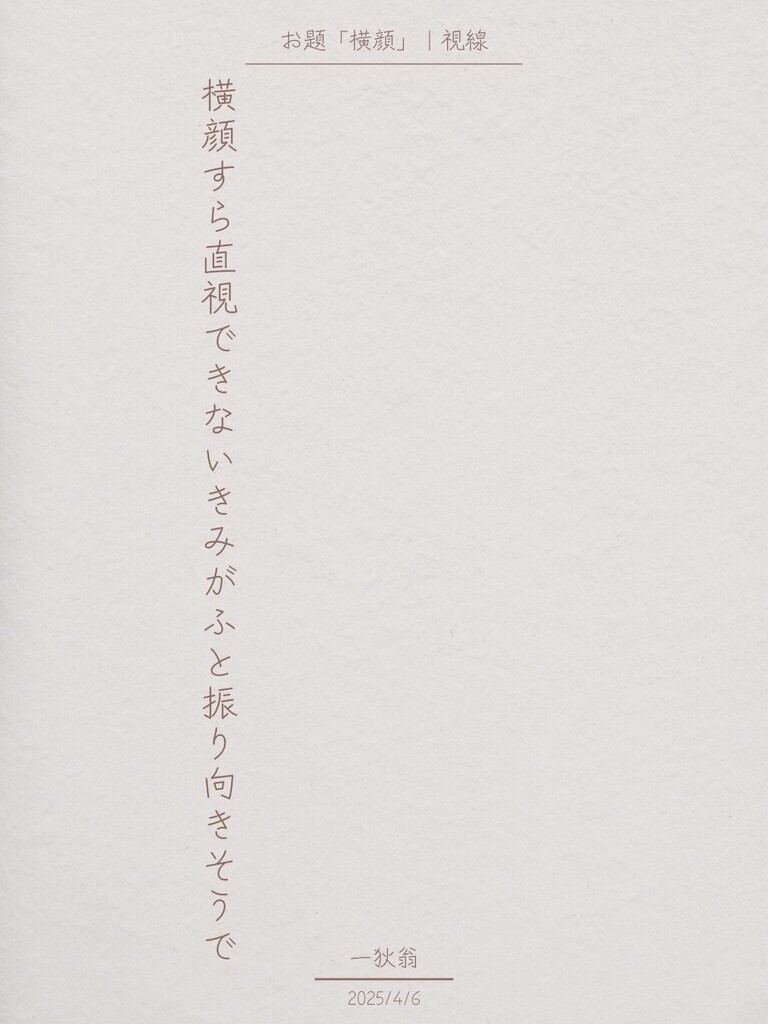 お題「横顔」｜視線
横顔すら直視できないきみがふと振り向きそうで
一狄翁
2025/4/6